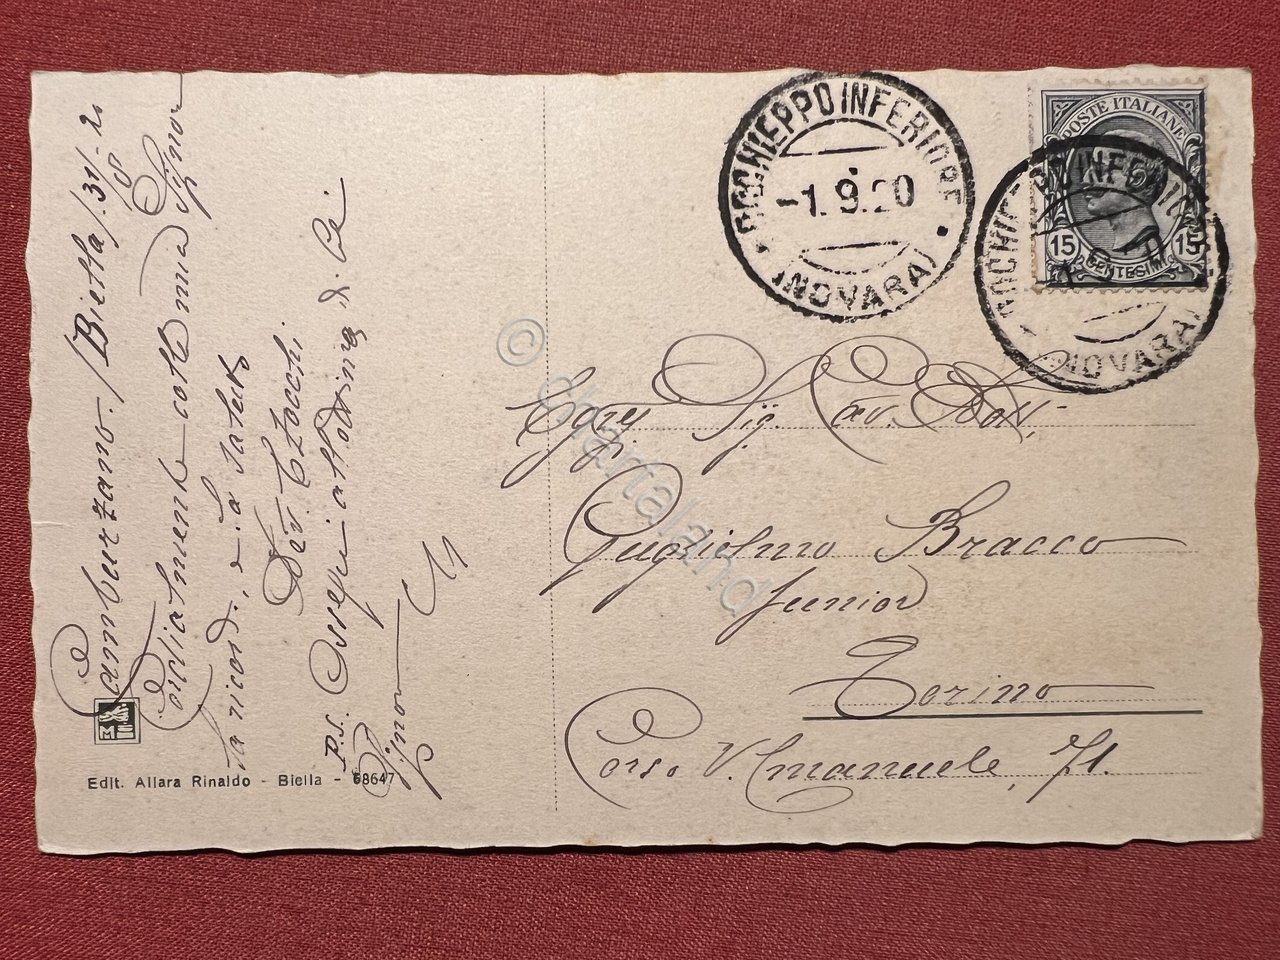 Camburzano. (Biella). 31/8-20
Cordialmente colla mia Signora
la ricordo, e la saluto
Dev.
P.S. Ossequi alla di Lei
Signora
Edit. Allara Rinaldo - Biella - 68647
OCCHIEPPO INFERIORE
-1.9.20
(NOVARA)
POSTE ITALIANE
15 15
CENTESIMI
OCCHIEPPO INFERIORE
(NOVARA)
Egreg. Sig. Cav. Dott.
Guglielmo Bracco
Junior
Torino
Corso V. Emanuele, 71.
© chartaland